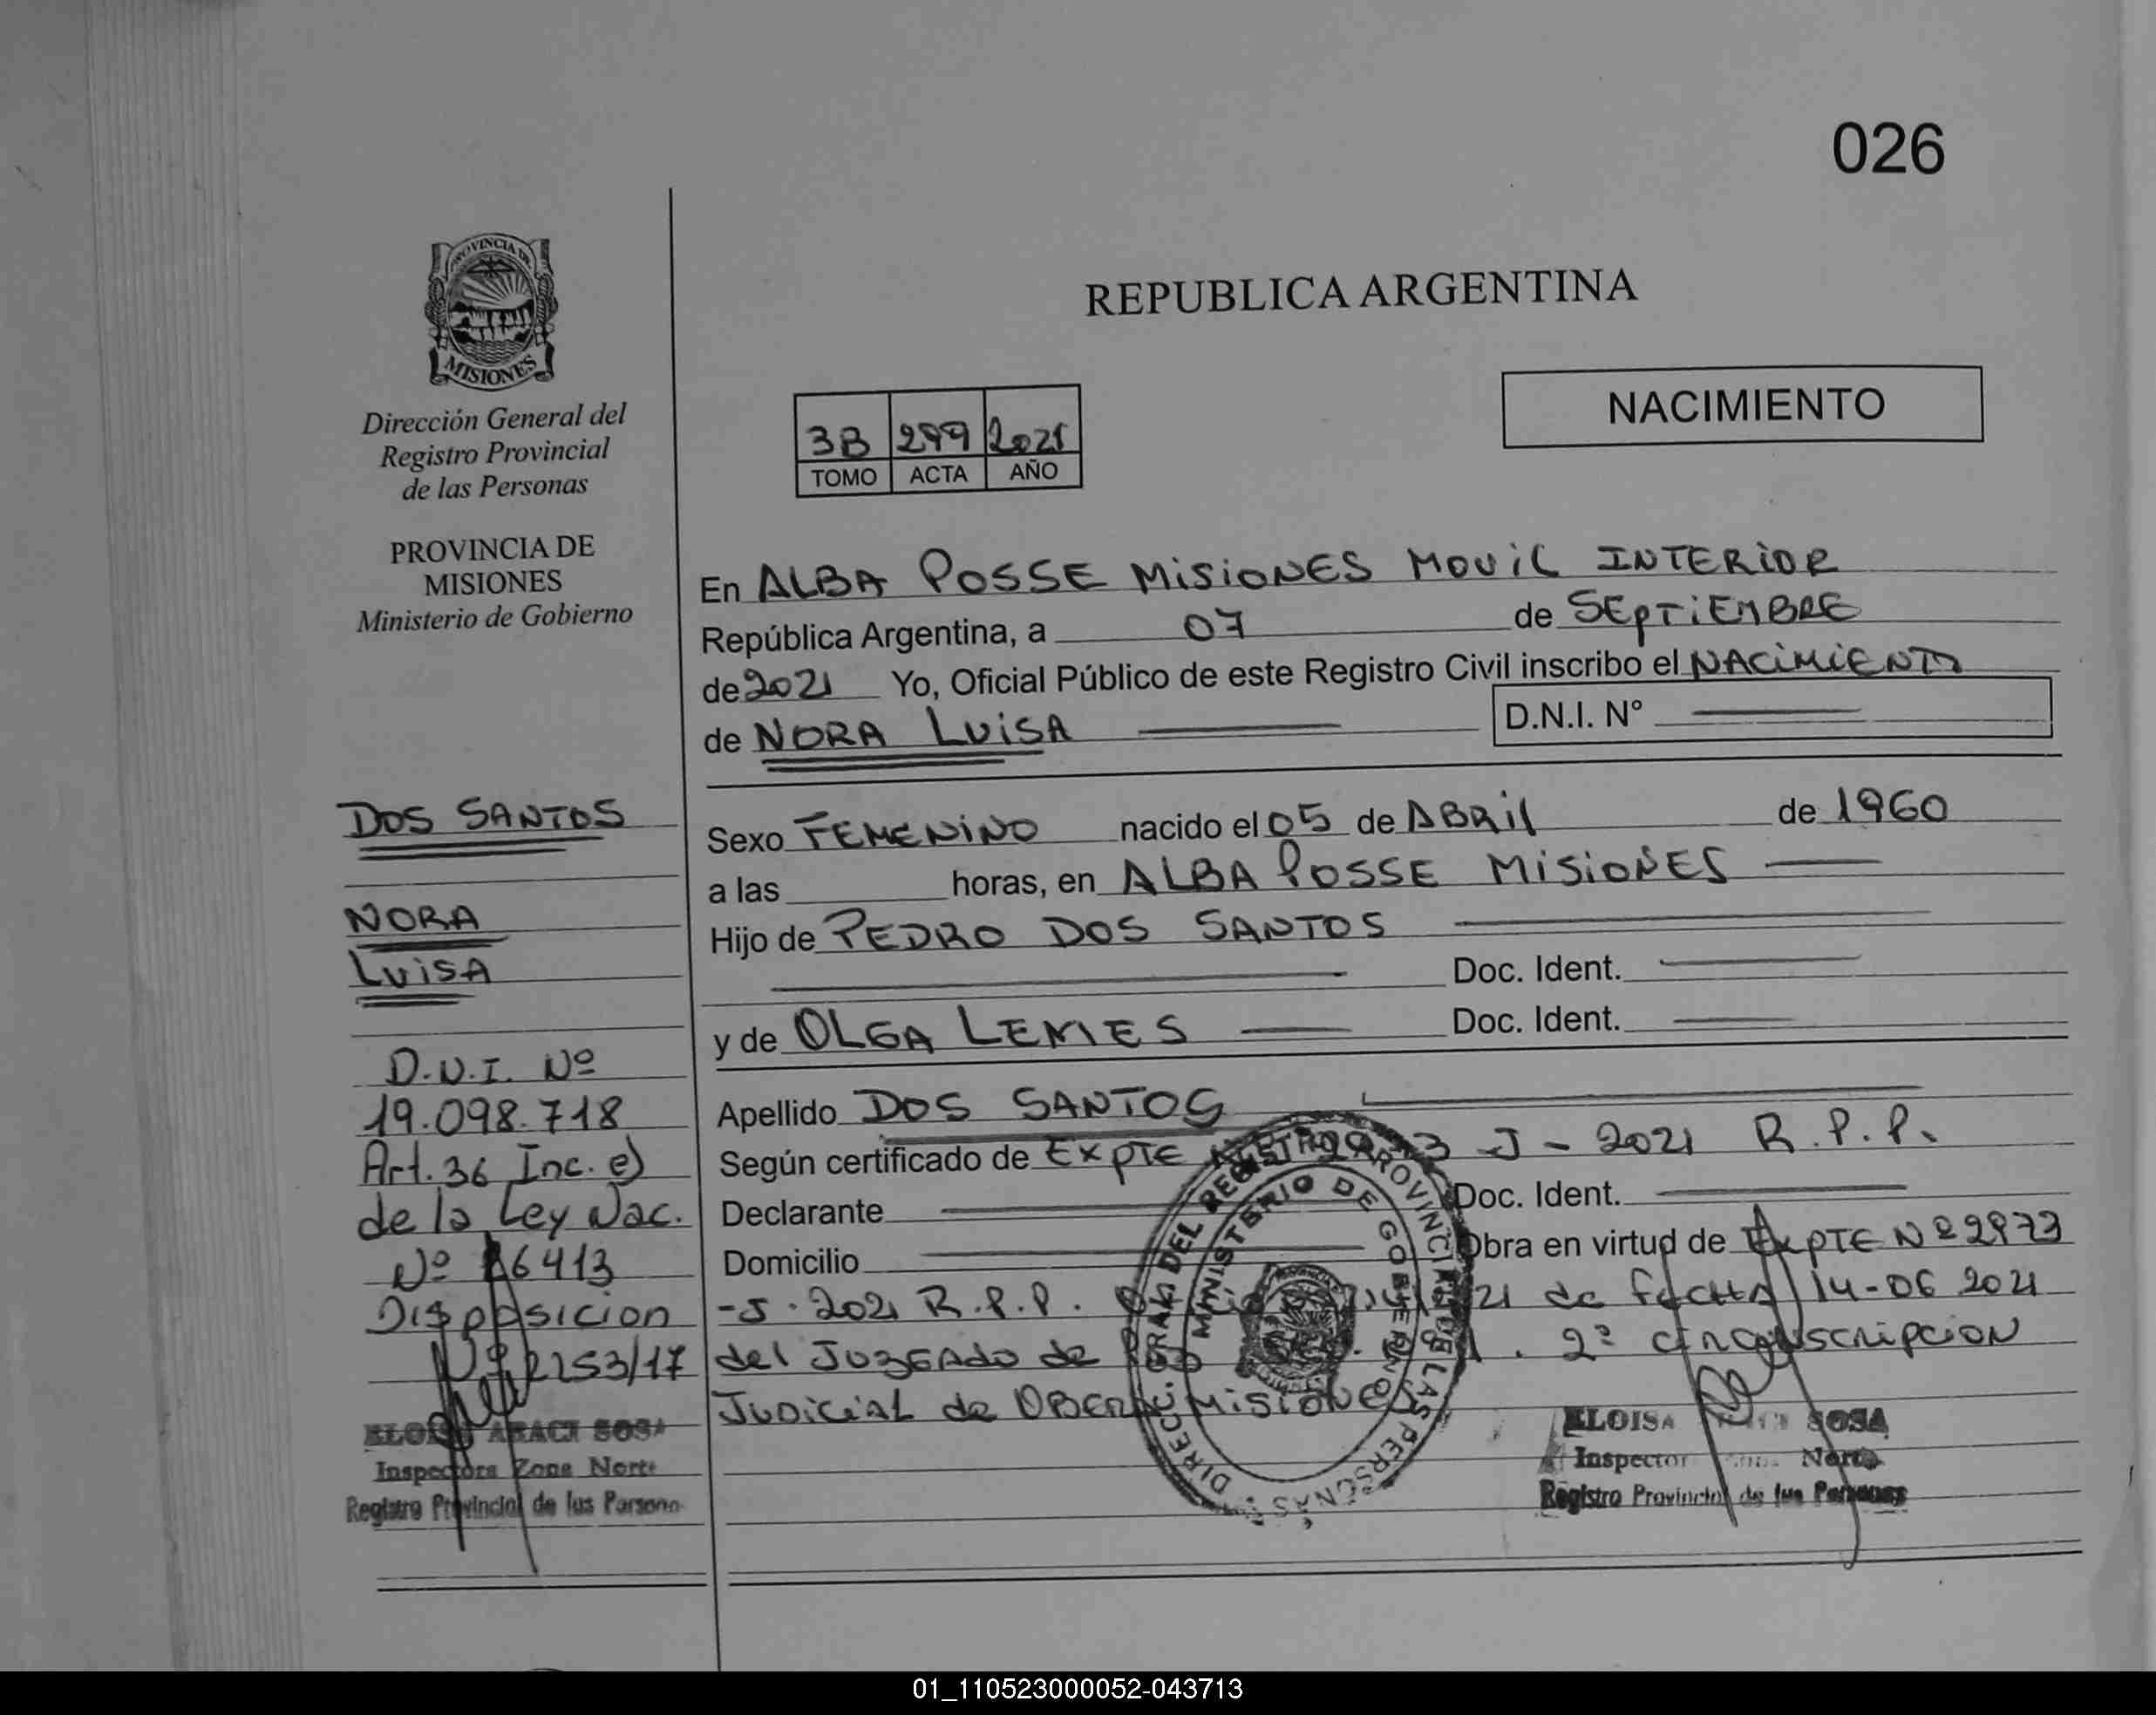 026
PROVINCIA DE
MISIONES
Dirección General del
Registro Provincial
de las Personas
PROVINCIA DE
MISIONES
Ministerio de Gobierno
DOS SANTOS
NORA
LUISA
D.N.I. Nº
19.098.718
Art. 36 Inc. e)
de la Ley Nac.
Nº 26413
Disposicion
Nº 2253/17
ARACI SOSA
Inspectora Zona Norte
Registro Provincial de las Persona
REPUBLICA ARGENTINA
NACIMIENTO
3B 299 2021
TOMO ACTA AÑO
En ALBA POSSE MISIONES MOVIL INTERIOR
República Argentina, a 07 de SEPTIEMBRE
de 2021 Yo, Oficial Público de este Registro Civil inscribo el NACIMIENTO
de NORA LUISA D.N.I. N°
Sexo FEMENINO nacido el 05 de ABRIL de 1960
a las horas, en ALBA POSSE MISIONES
Hijo de PEDRO DOS SANTOS
Doc. Ident.
y de OLGA LEMES Doc. Ident.
Apellido DOS SANTOS
Según certificado de EXPTE J - 2021 R.P.P.
Declarante Doc. Ident.
Domicilio Obra en virtud de EXPTE Nº 2973
-J. 2021 R.P.P. 21 de FECHA 14-06 2021
del JUZGADO de 2º circunscripcion
JUDICIAL de OBERA MISIONES
DIRECC. GRAL. DEL REGISTRO PROVINCIAL DE LAS PERSONAS
MINISTERIO DE GOBIERNO
ELOISA SOSA
Inspector Norte
Registro Provincial de las Personas
01_110523000052-043713